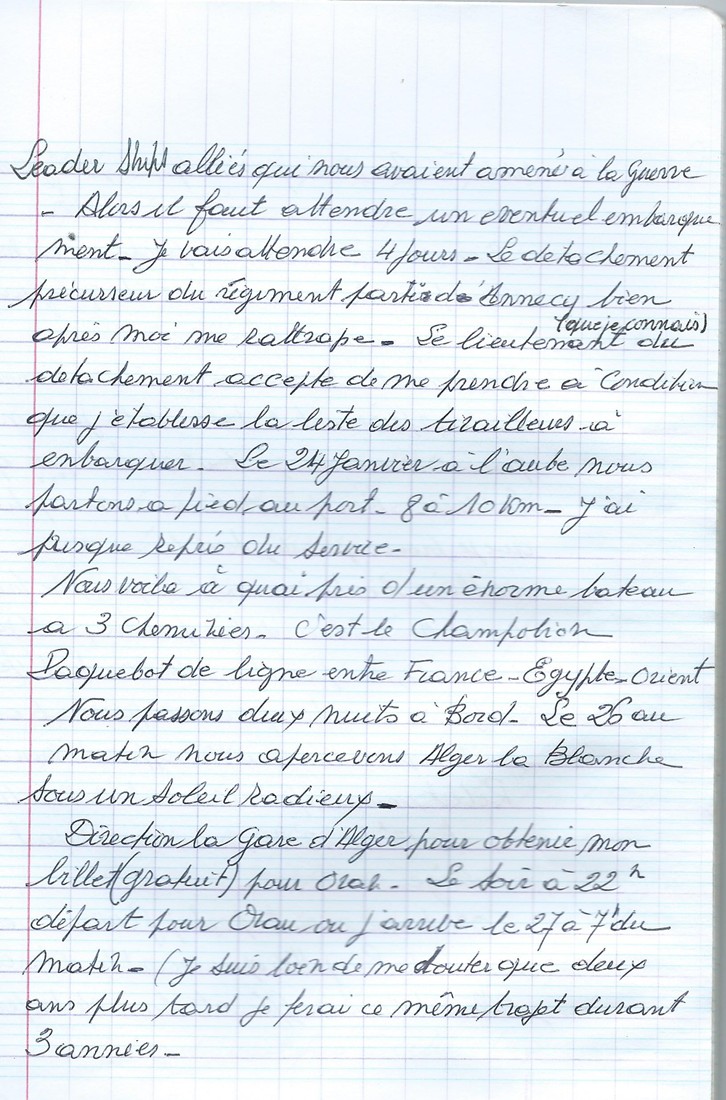 Leader Ships alliés qui nous avaient amené à la Guerre
- Alors il faut attendre un eventuel embarque
ment - Je vais attendre 4 jours - Le detachement
précurseur du régiment parti d'Annecy bien
après moi me rattrape - Le lieutenant (que je connais) du
detachement accepte de me prendre à Condition
que j'établisse la liste des tirailleurs à
embarquer. Le 24 Janvier à l'aube nous
partons a pied au port - 8 à 10 km - J'ai
presque repris du Service -
Nous voila à quai près d'un énorme bateau
a 3 Cheminées - C'est le Champolion
Paquebot de ligne entre France - Egypte - Orient
Nous passons deux nuits à Bord - Le 26 au
matin nous apercevons Alger la Blanche
Sous un Soleil radieux -
Direction la Gare d'Alger pour obtenir mon
billet (gratuit) pour Oran - Le Soir à 22h
départ pour Oran ou j'arrive le 27 à 7h du
matin - (Je suis loin de me douter que deux
ans plus tard je ferai ce même trajet durant
3 années -